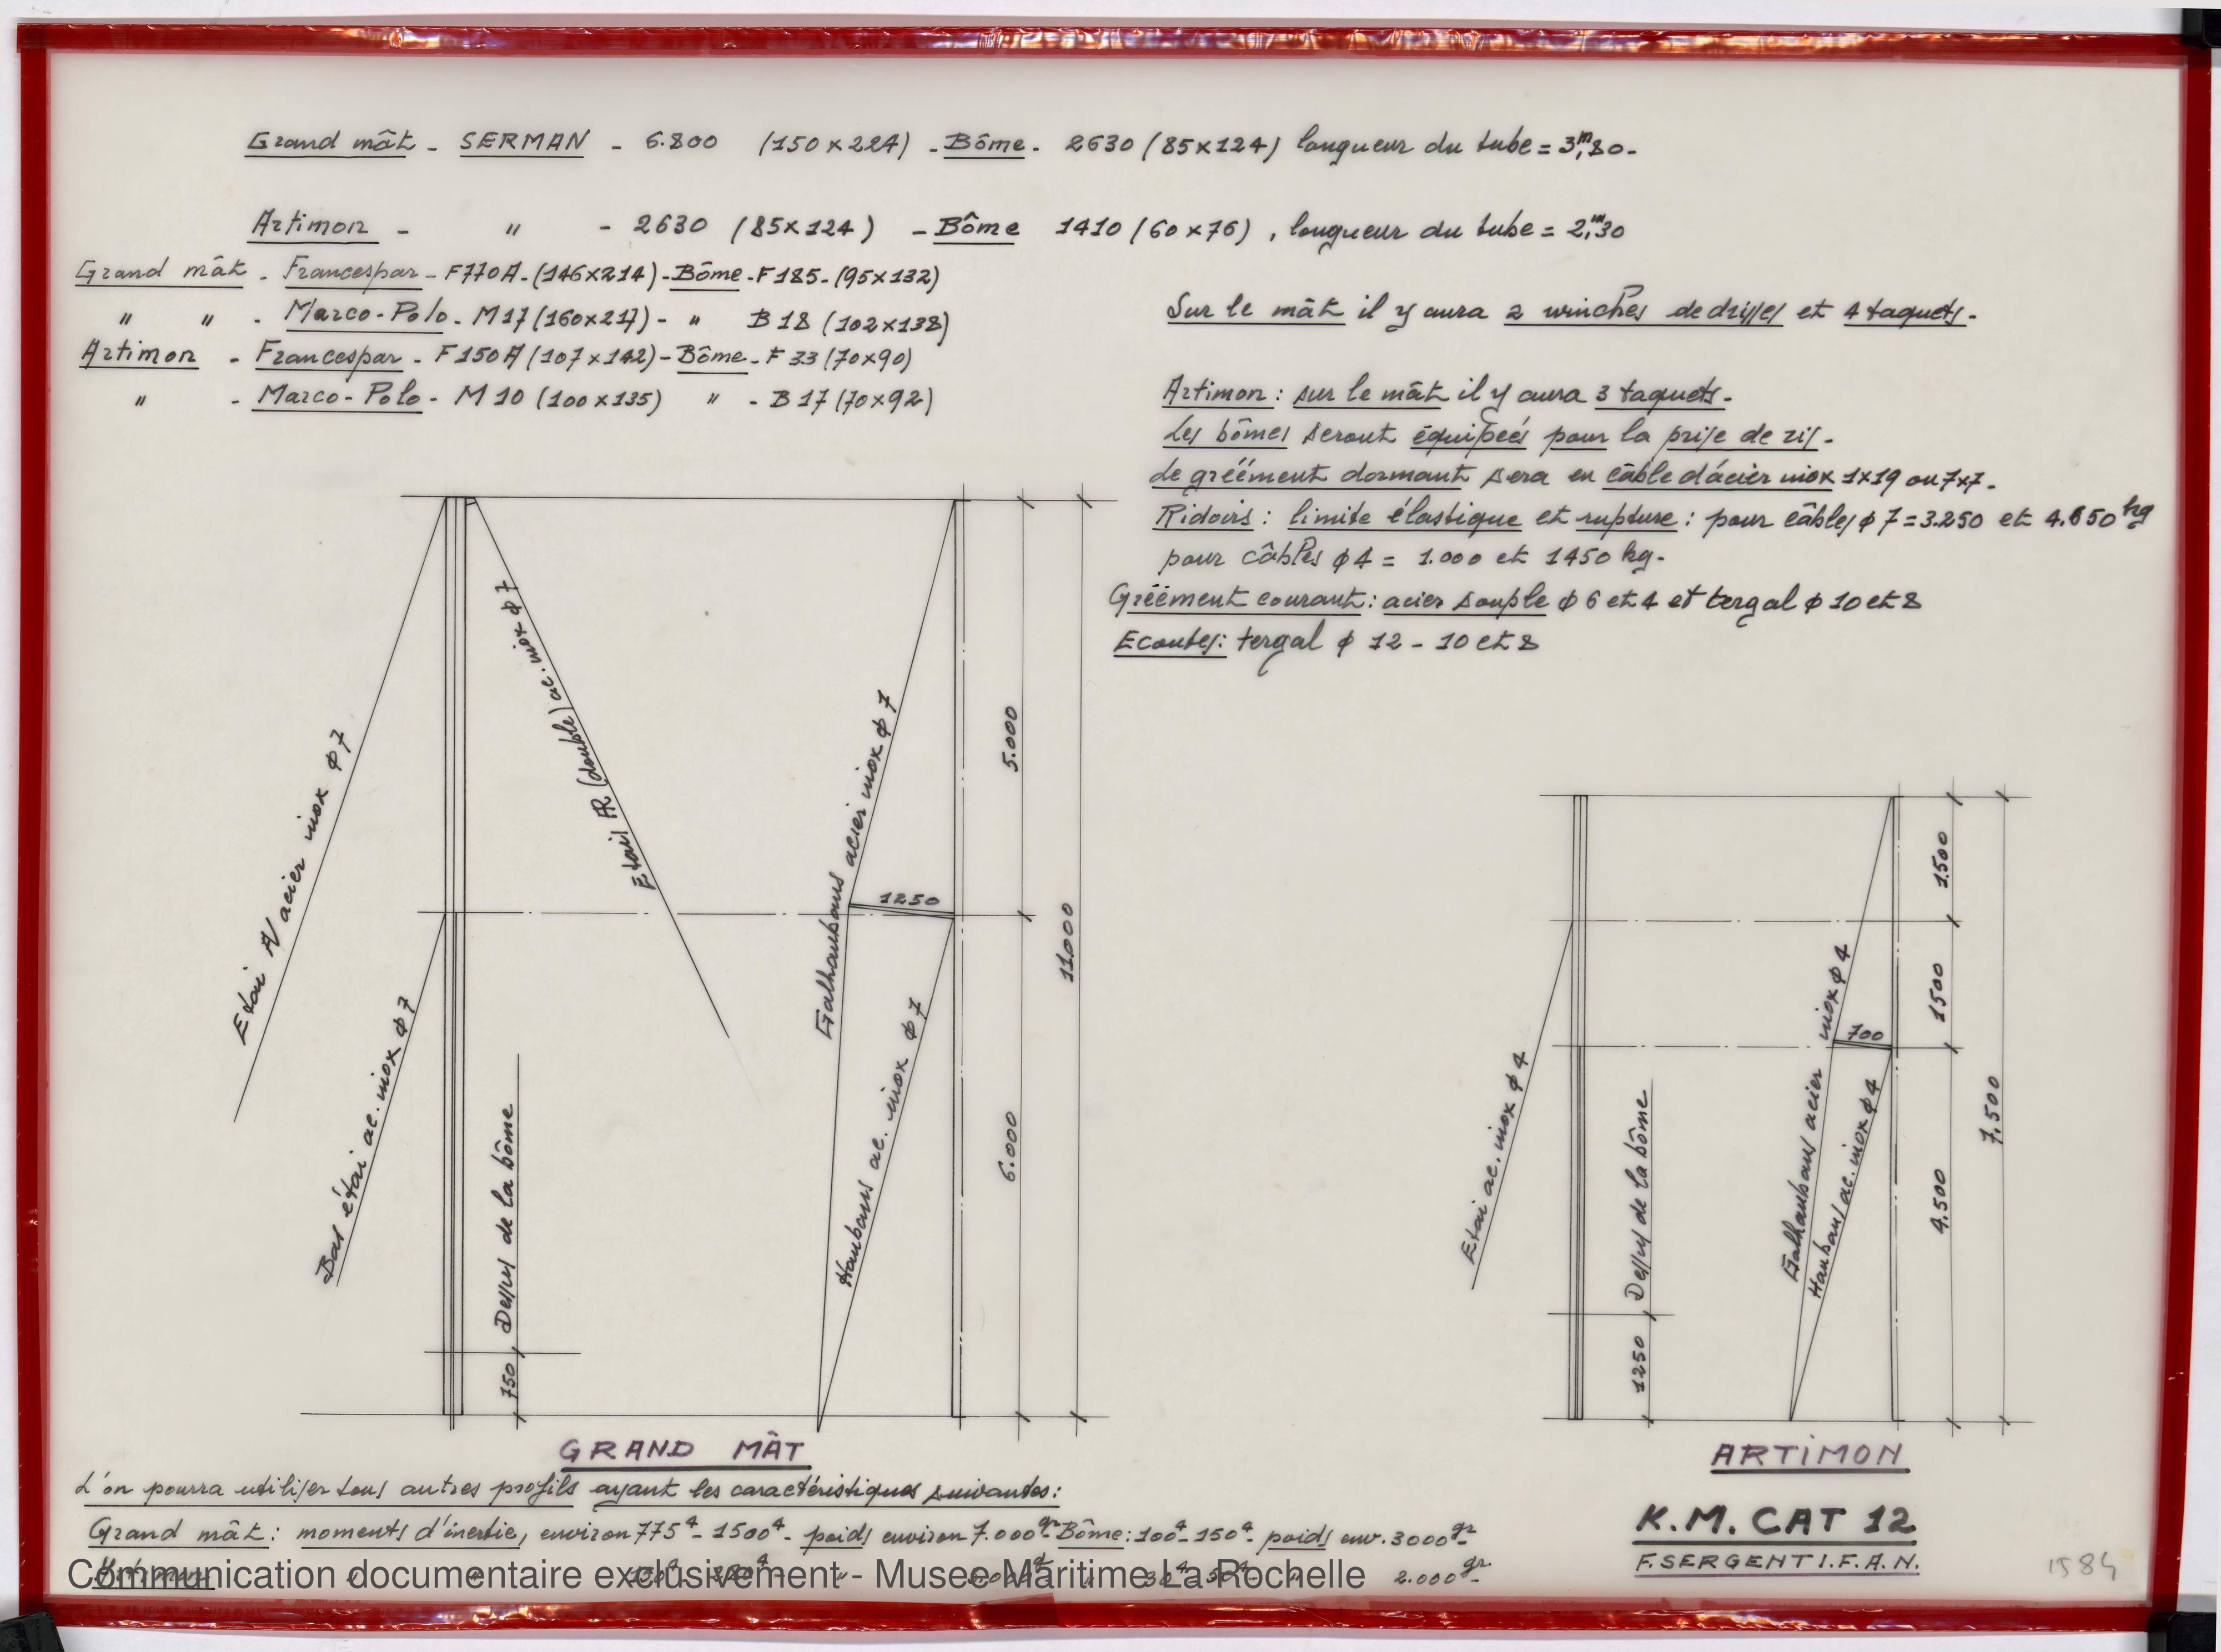 Grand mât - SERMAN - 6.800 (150 x 224) - Bôme - 2630 (85 x 124) longueur du tube = 3,m80 -
Artimon - " - 2630 (85 x 124) - Bôme 1410 (60 x 76), longueur du tube = 2,m30
Grand mât - Francespar - F770A - (146 x 214) - Bôme - F185 - (95 x 132)
" " - Marco-Polo - M17 (160 x 217) - " B18 (102 x 138)
Artimon - Francespar - F150A (107 x 142) - Bôme - F33 (70 x 90)
" - Marco-Polo - M10 (100 x 135) " - B17 (70 x 92)
Sur le mât il y aura 2 winches de drisses et 4 taquets -
Artimon : sur le mât il y aura 3 taquets -
Les bômes seront équipées pour la prise de ris -
Le gréément dormant sera en câble d'acier inox 1x19 ou 7x7 -
Ridoirs : limite élastique et rupture : pour câbles ϕ 7 = 3.250 et 4.650 kg
pour câbles ϕ 4 = 1.000 et 1450 kg -
Gréément courant : acier souple ϕ 6 et 4 et tergal ϕ 10 et 8
Ecoutes : tergal ϕ 12 - 10 et 8
Etai AV acier inox ϕ 7
Bas étai ac. inox ϕ 7
Etai AR (double) ac. inox ϕ 7
750
Dessus de la bôme
Galhaubans acier inox ϕ 7
Haubans ac. inox ϕ 7
1250
5.000
6.000
11.000
GRAND MÂT
Etai ac. inox ϕ 4
1250
Dessus de la bôme
Galhaubans acier inox ϕ 4
Haubans ac. inox ϕ 4
700
1.500
1500
4.500
7.500
ARTIMON
L'on pourra utiliser tous autres profils ayant les caractéristiques suivantes :
Grand mât : moments d'inertie, environ 775⁴ - 1500⁴ - poids environ 7.000gr - Bôme : 100⁴ - 150⁴ - poids env. 3000gr -
Artimon " " " 30⁴ 50⁴ - " 2.000gr -
Communication documentaire exclusivement - Musee Maritime La Rochelle
K.M. CAT 12
F. SERGENT I.F.A.N.
1584